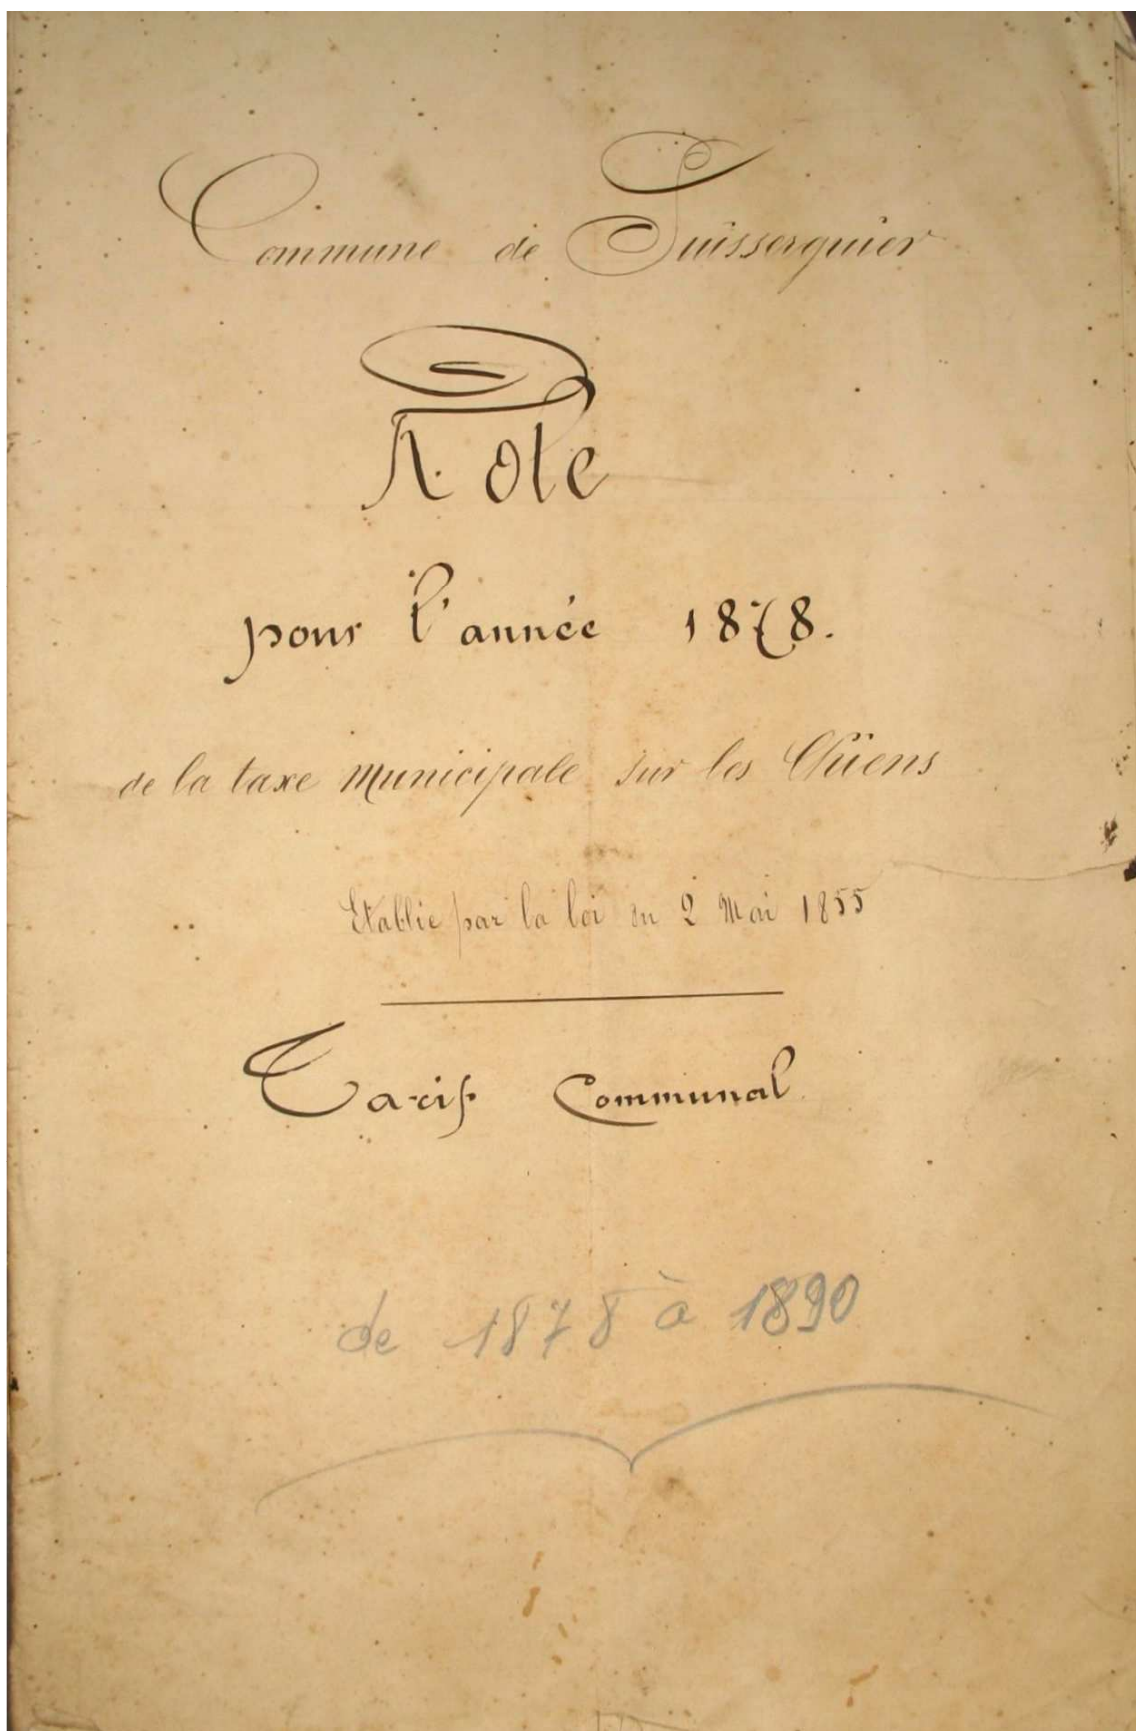 Commune de Puisserguier
Role
pour l'année 1878.
de la taxe Municipale sur les Chiens
Etablie par la loi du 2 Mai 1855
Tarif Communal.
de 1878 à 1890